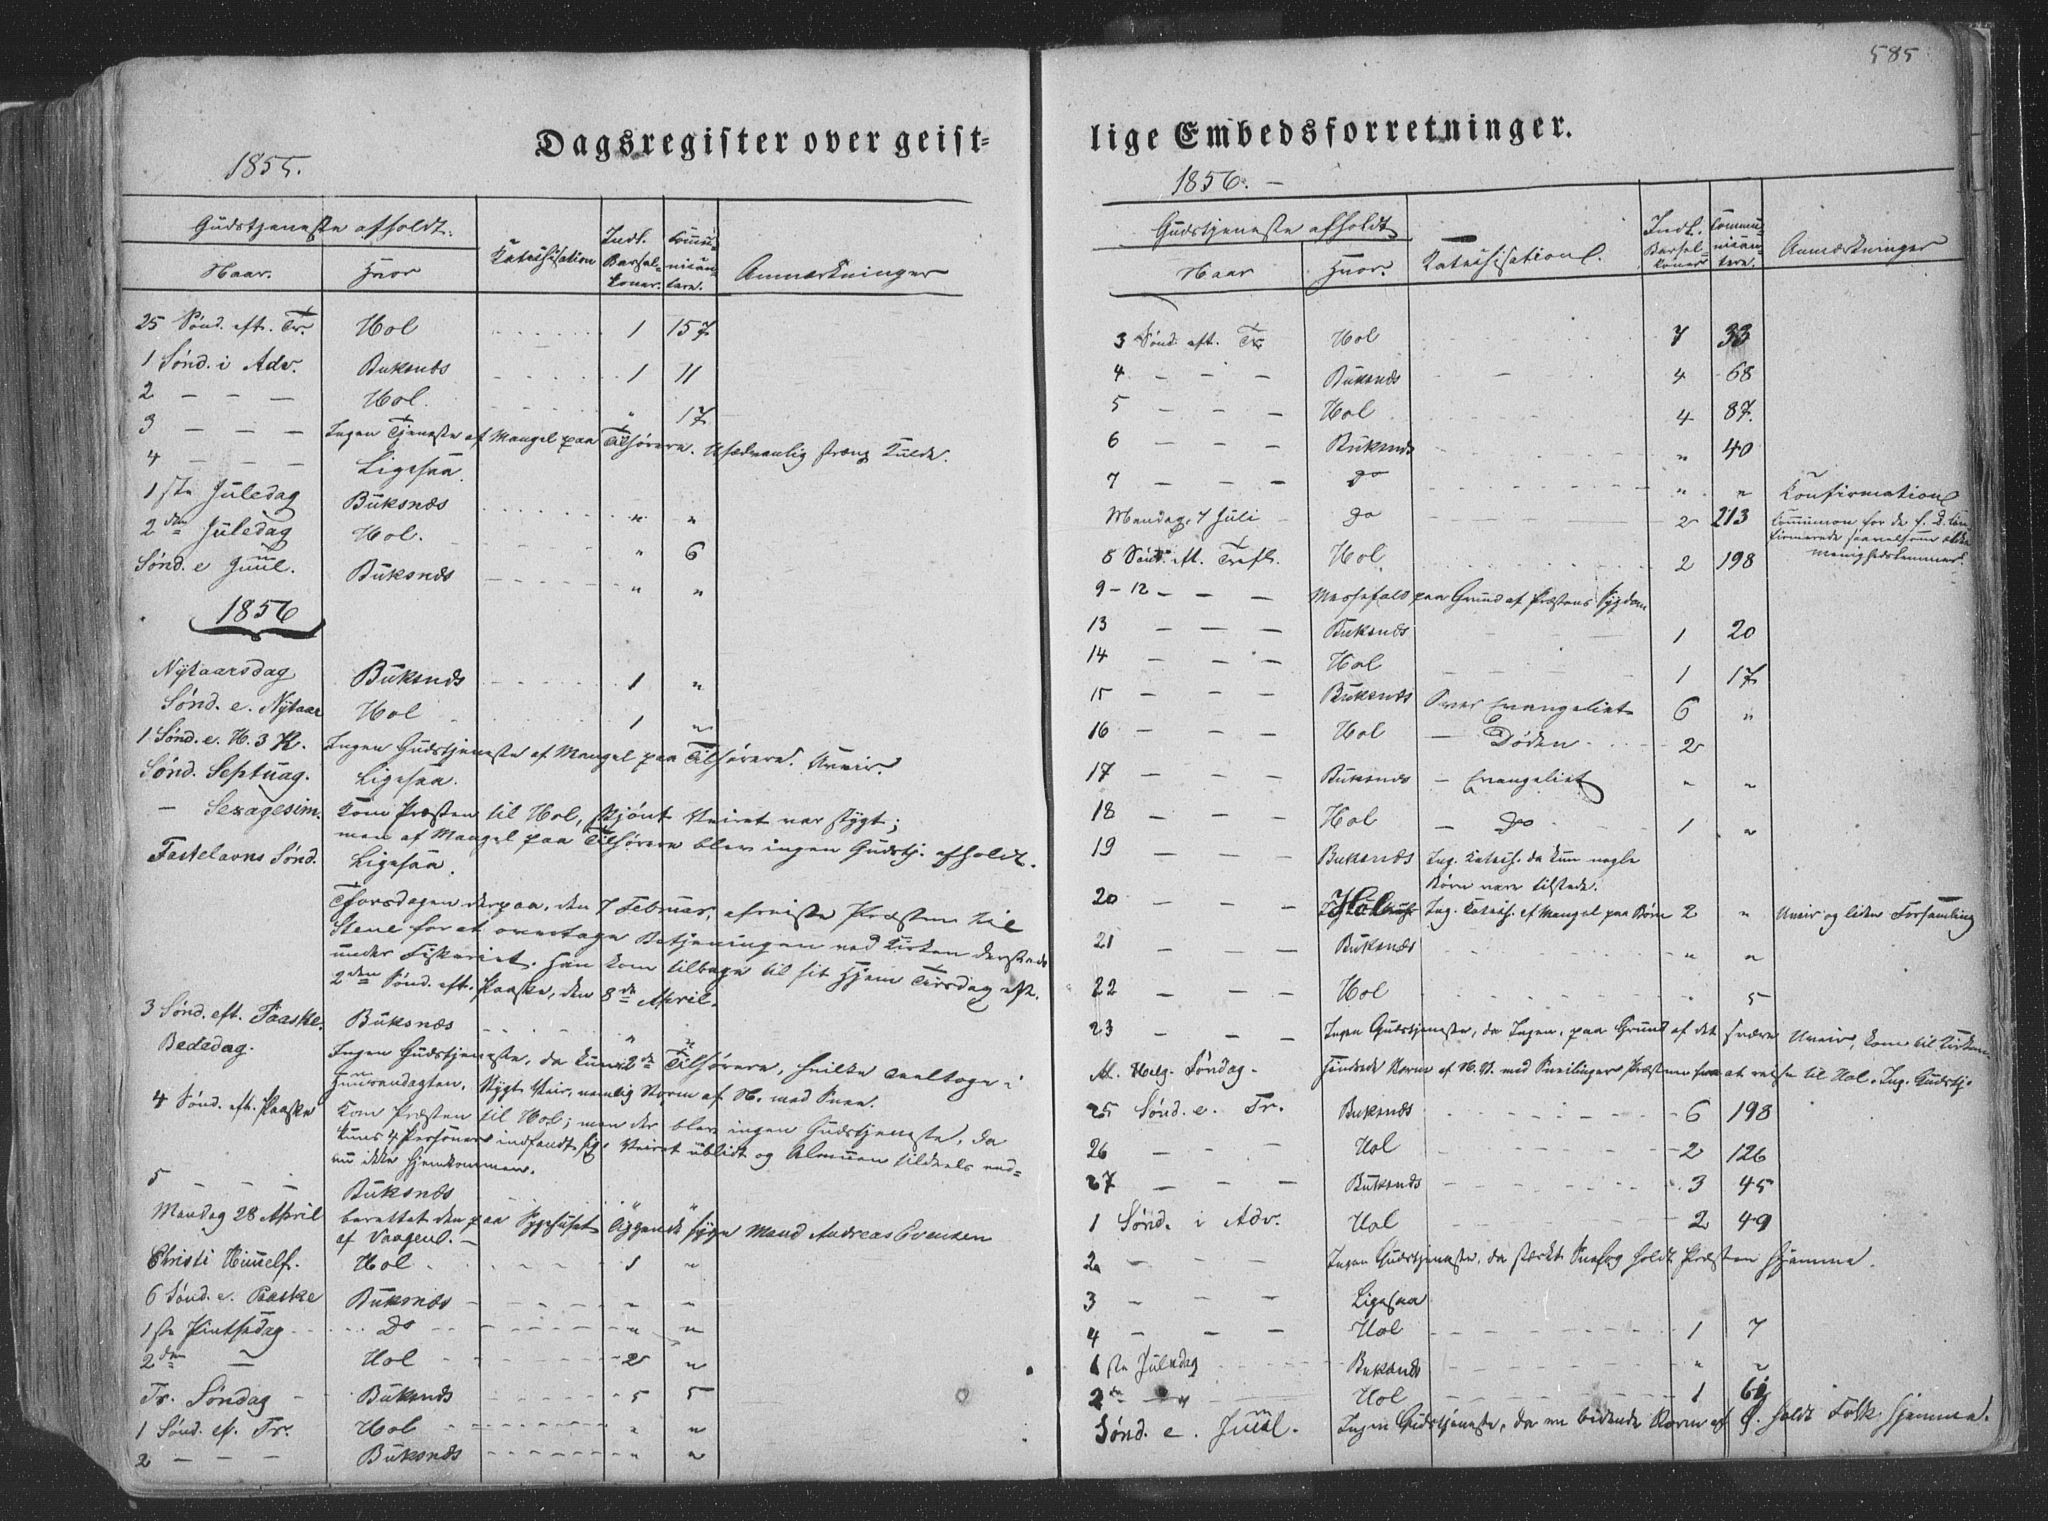 585
Dagsregister over geist-
1855.
Gudstjeneste afholdt.
Naar. Hvor Katechisation Indl. Barselkoner. Communicantere. Anmærkninger
25 Sønd. eft. Tr. Hol 1 157
1 Sønd. i Adv. Buksnæs 1 11
2 — — — Hol. " 17
3 — — — Ingen Tjeneste af Mangel paa Tilhørere. Usædvanlig stræng Kulde.
4 — — — Ligesaa.
1ste Juledag Buksnæs " "
2den Juledag Hol. " 6
Sønd. e Juul. Buksnæs " "
1856
Nytaarsdag Buksnæs 1 "
Sønd. e. Nytaar Hol 1 "
1 Sønd. e. H. 3 K. Ingen Gudstjeneste af Mangel paa Tilhørere. Uveir.
Sønd. Septuag. Ligesaa.
— Sexagesim. Kom Præsten til Hol, skjønt Veiret var stygt;
men af Mangel paa Tilhørere blev ingen Gudstj. afholdt.
Fastelavns Sønd. Ligesaa.
Thorsdagen derpaa, den 7 Februar, afreiste Præsten til
Stene for at overtage Betjeningen ved Kirken dersteds
under Fiskeriet. Han kom tilbage til sit Hjem Tirsdag eft.
2den Sønd. eft. Paaske, den 8de April.
3 Sønd. eft. Paaske. Buksnæs " "
Bededag. Ingen Gudstjeneste, da kuns 2de Tilhørere, hvilke deeltoge i
Huusandagten. Stygt Veir, nemlig Storm af N. med Snee.
4 Sønd. eft. Paaske Kom Præsten til Hol; men der blev ingen Gudstjeneste, da
kuns 4 Personer indfandt sig. Veiret ublidt og Almuen tildeels end-
nu ikke hjemkommen.
5 — — — Buksnæs " "
Mandag 28 April berettet den paa Sygehuset liggende syge Mand Andreas Evensen
af Vaagen. —
Christi Himmelf. Hol 1 "
6 Sønd. e. Paaske Buksnæs " "
1ste Pintsedag Do " "
2den — Hol 2 "
Tr. Søndag Buksnæs 5 5
1 Sønd. ef. Tr. Hol " "
2 — — — Buksnæs " "
lige Embedsforretninger.
1856. —
Gudstjeneste afholdt
Naar Hvor. Katechisation. Indl. Barselkoner Communicantere. Anmærkninger
3 Sønd. eft. Tr. Hol 7 33
4 — — — Buksnæs 4 68
5 — — — Hol 4 87.
6 — — — Buksnæs " 40
7 — — — Do " " Konfirmation
Mandag, 7 Juli Do 2 213 Communion for de f. D. Con-
firmerede saavelsom
menighedslemmer.
8 Sønd. eft. Trefl. Hol. 2 198
9 – 12 — — — Messefald paa Grund af Præstens Sygdom
13 — — — Buksnæs 1 20
14 — — — Hol 1 17
15 — — — Buksnæs Over Evangeliet 6 "
16 — — — Hol — Døden 2
17 — — — Buksnæs — Evangeliet " "
18 — — — Hol — Do 1 "
19 — — — Buksnæs Ing. Katech. da kun nogle
Børn vare tilstede.
20 — — — Hol Ing. Katech. af Mangel paa Børn 2 " Uveir og liden Forsamling
21 — — — Buksnæs " "
22 — — — Hol " 5
23 — — — Ingen Gudstjeneste, da Ingen, paa Grund af det svære Uveir, kom til Kirken.
Al. Helg. Søndag. Hindrede Storm af N.V. med Sneilinger Præsten fra at reise til Hol. Ing. Gudstj.
25 Sønd. e. Tr. Buksnæs 6 198
26 — — Hol 2 126
27 — — — Buksnæs 3 45
1 Sønd. i Adv. Hol 2 49
2 — — — Ingen Gudstjeneste, da stærkt Snefog holdt Præsten hjemme.
3 — — — Ligesaa
4 — — — Hol 1 7
1ste Juledag Buksnæs " "
2den — Hol 1 6
Sønd. e. Juul. Ingen Gudstjeneste, da en bidende Storm af holdt Folk hjemme.